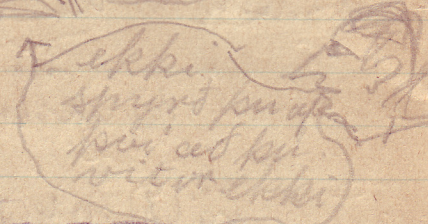 ekki
spyrð þu af
því að þu
vitir ekki